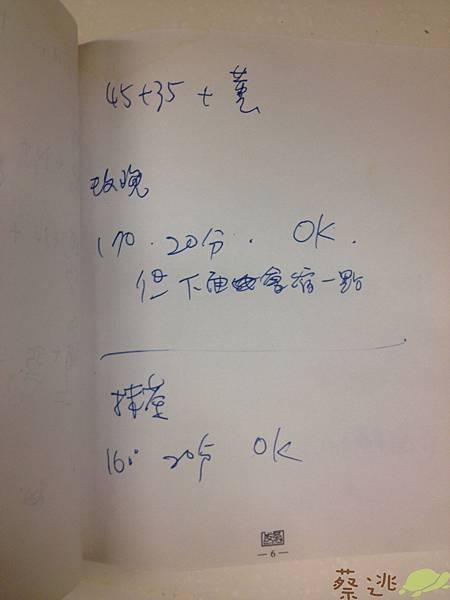 45+35 +
170 . 20分 . OK .
但下面會 一點
抹茶
160 20分 OK
— 6 —
蔡逃